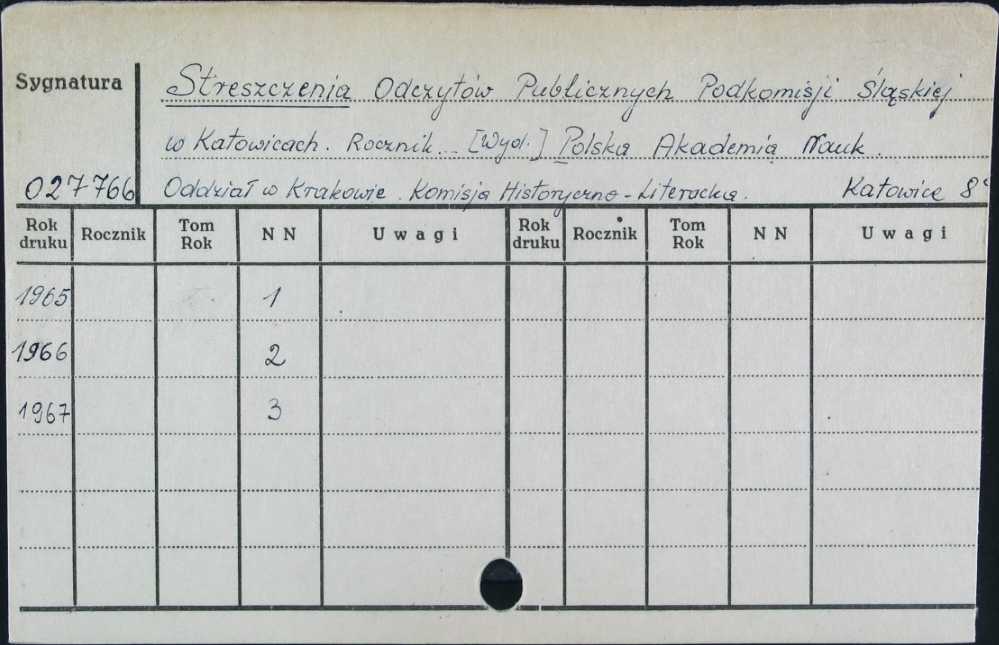 Sygnatura
Streszczenia Odczytów Publicznych Podkomisji Śląskiej
w Katowicach. Rocznik... [Wyd.] Polska Akademia Nauk.
027766 Oddział w Krakowie. Komisja Historyczno-Literacka. Katowice 8°
Rok druku Rocznik Tom Rok NN Uwagi Rok druku Rocznik Tom Rok NN Uwagi
1965 1
1966 2
1967 3